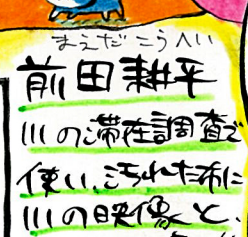 まえだこうへい
前田耕平
川の滞在調査で
使い、汚れた布に
川の映像と、